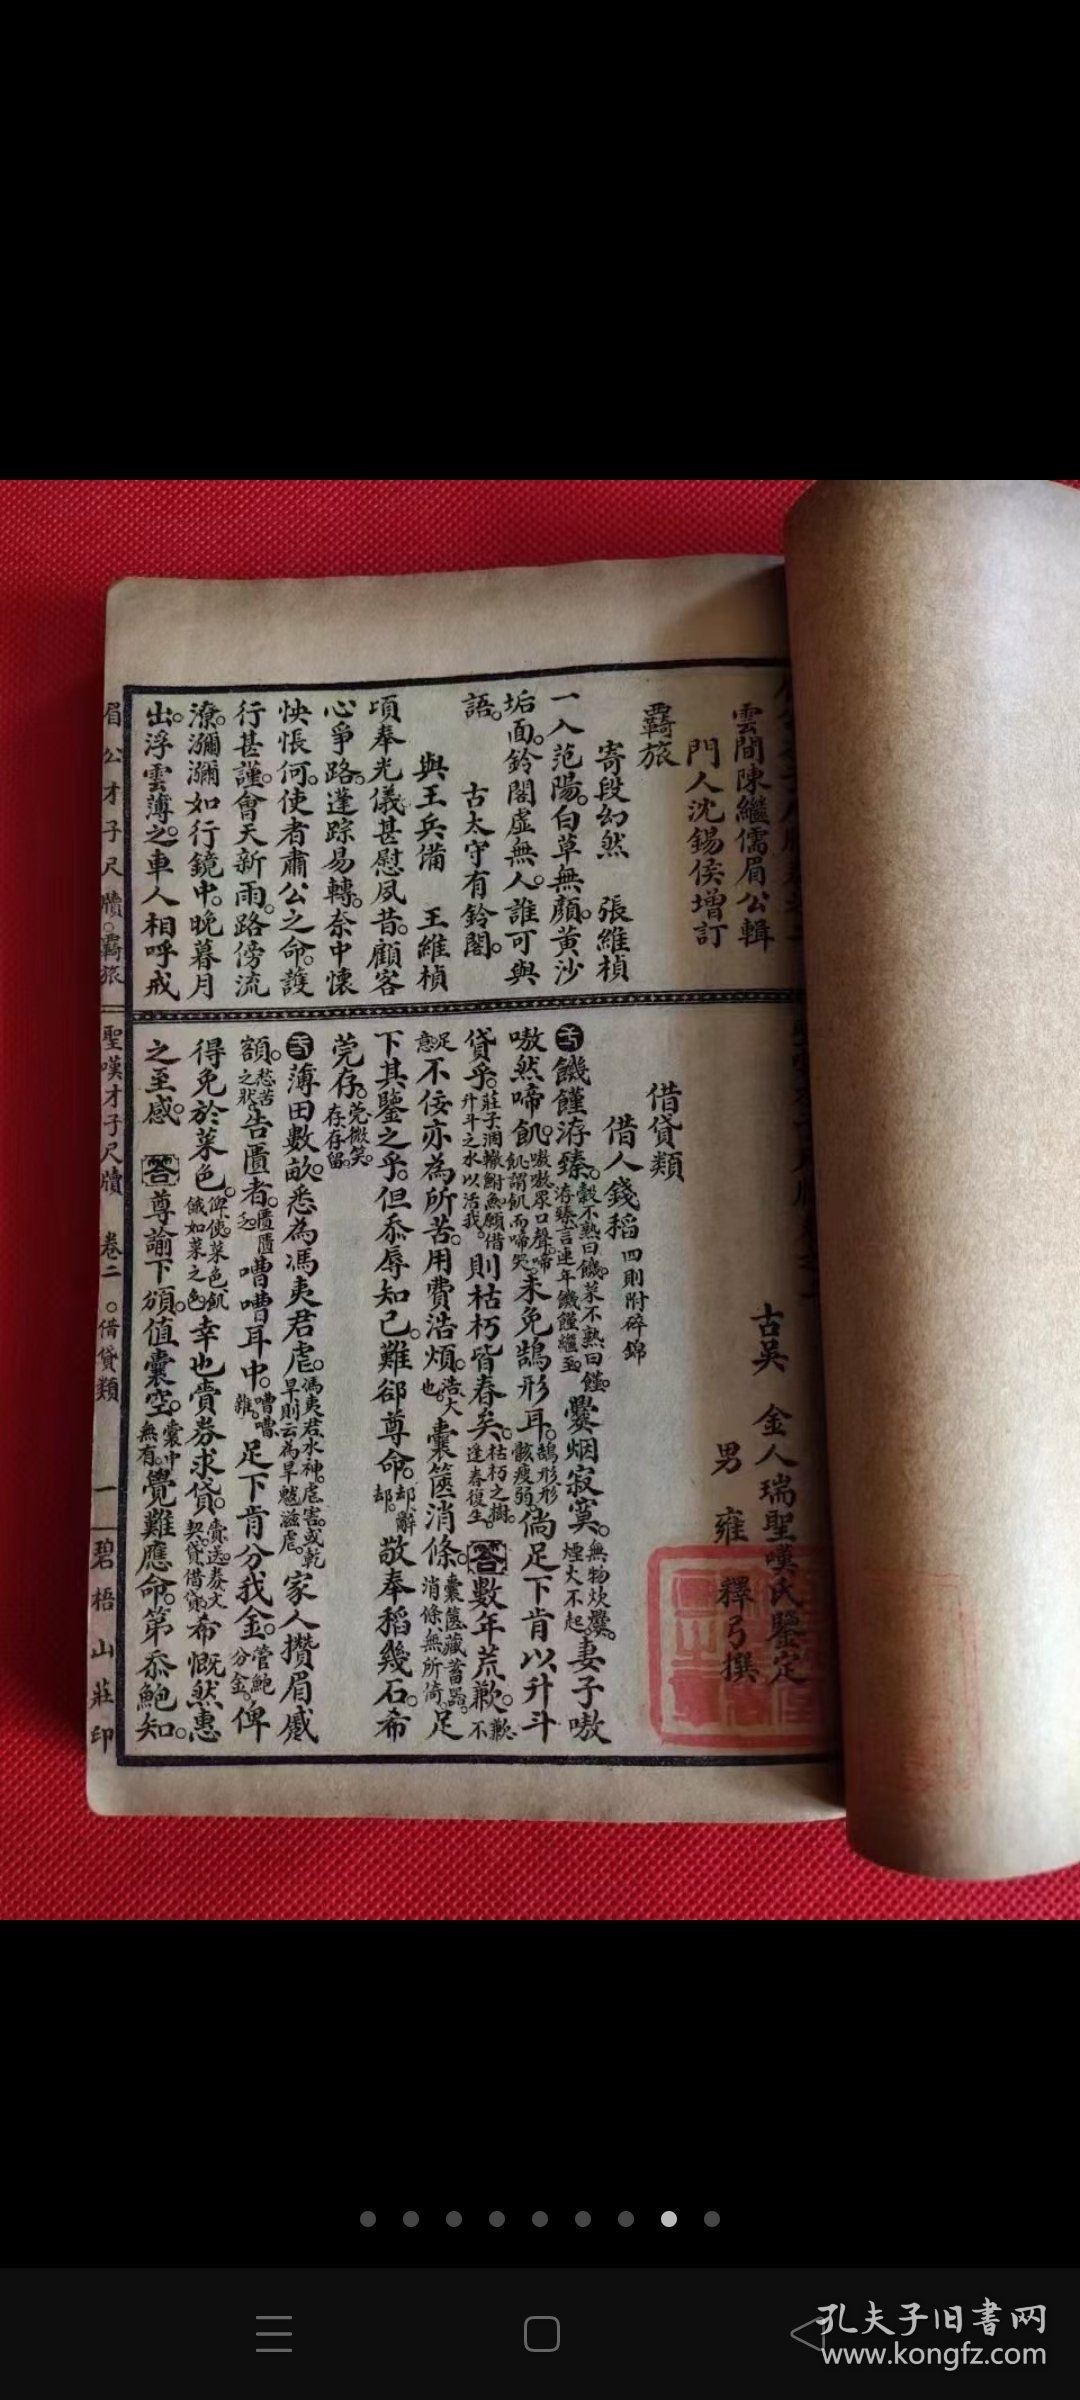 雲間陳繼儒眉公輯
門人沈錫侯增訂
羇旅
寄段幻然　張維楨
一入范陽。白草無顏。黃沙
垢面。鈴閣虛無人。誰可與
語。　古太守有鈴閣。
與王兵備　王維楨
頃奉光儀甚慰夙昔。顧客
心爭路。蓬踪易轉。奈中懷
怏悵何。使者肅公之命。護
行甚謹。會天新雨。路傍流
潦瀰瀰如行鏡中。晚暮月
出。浮雲薄之。車人相呼戒
古吳　金人瑞聖嘆氏鑒定
男　雍　釋弓撰
借貸類
借人錢稻　四則附碎錦
饑饉洊臻。穀不熟曰饑。菜不熟曰饉。洊臻言連年饑饉繼至。爨烟寂寞。無物炊爨。煙火不起。妻子嗷
嗷然啼飢。嗷嗷眾口聲。啼飢謂飢而啼哭。未免鵠形耳。鵠形形骸瘦弱。倘足下肯以升斗
貸乎。莊子涸轍鮒魚願借升斗之水以活我。則枯朽皆春矣。枯朽之樹。逢春復生。答數年荒歉。歉不
足意。不佞亦為所苦。用費浩煩。浩大也。囊篋消條。囊篋藏蓄器。消條無所倚。足
下其鑒之乎。但忝辱知己。難郤尊命。却辭却。敬奉稻幾石。希
莞存。莞微笑。存存留。
薄田數畝。悉為馮夷君虐。馮夷君水神。虐害。或乾旱則云為旱魃滋虐。家人攢眉蹙
額。愁苦之狀。告匱者。匱匱乏。嘈嘈耳中。嘈嘈雜。足下肯分我金。管鮑分金。俾
得免於菜色。俾使。菜色飢餓如菜之色。幸也賫券求貸。賫送。券文契。貸借貸。希慨然惠
之至感。　答尊諭下頒。值囊空。囊中無有。覺難應命。第忝鮑知。
眉公才子尺牘。羇旅　聖嘆才子尺牘　卷二。借貸類　一　碧梧山莊印
孔夫子旧書网
www.kongfz.com